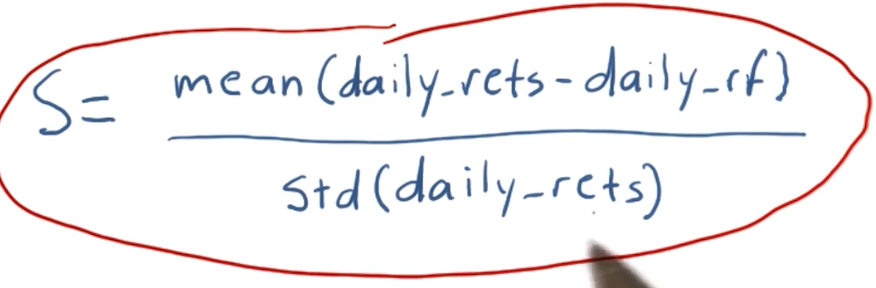 S = mean(daily_rets - daily_rf)
std(daily_rets)